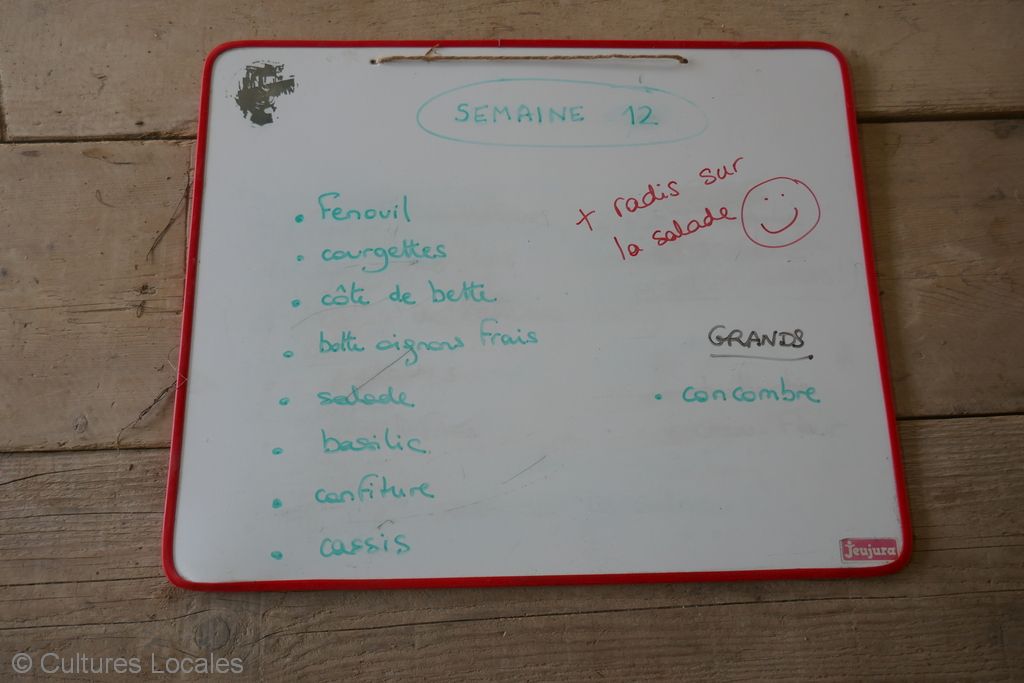 SEMAINE 12
• Fenouil
• courgettes
• côte de bette
• botte oignons frais
• salade
• basilic
• confiture
• cassis
+ radis sur
la salade
GRANDS
• concombre
Jeujura
© Cultures Locales